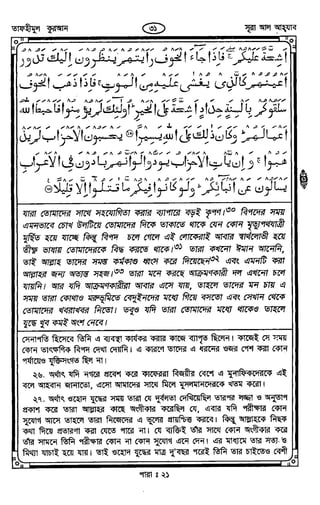 তাফহীমুল কুরআন
৩১
সূরা আল আহযাব
أَشِحَّةً عَلَيْكُمْ ۚ فَإِذَا جَاءَ الْخَوْفُ رَأَيْتَهُمْ يَنْظُرُونَ إِلَيْكَ تَدُورُ
أَعْيُنُهُمْ كَالَّذِي يُغْشَىٰ عَلَيْهِ مِنَ الْمَوْتِ ۚ فَإِذَا ذَهَبَ الْخَوْفُ
سَلَقُوكُمْ بِأَلْسِنَةٍ حِدَادٍ أَشِحَّةً عَلَى الْخَيْرِ ۚ أُولَٰئِكَ لَمْ يُؤْمِنُوا فَأَحْبَطَ اللَّهُ
أَعْمَالَهُمْ ۚ وَكَانَ ذَٰلِكَ عَلَى اللَّهِ يَسِيرًا ۝ يَحْسَبُونَ الْأَحْزَابَ لَمْ يَذْ
هَبُوا ۚ وَإِنْ يَأْتِ الْأَحْزَابُ يَوَدُّوا لَوْ أَنَّهُمْ بَادُونَ فِي الْأَعْرَابِ
يَسْأَلُونَ عَنْ أَنْبَائِكُمْ ۚ وَلَوْ كَانُوا فِيكُمْ مَا قَاتَلُوا إِلَّا قَلِيلًا ۝
যারা তোমাদের সাথে সহযোগিতা করার ব্যাপারে বড়ই কৃপণ।৩০ বিপদের সময়
এমনভাবে চোখ উলটিয়ে তোমাদের দিকে তাকাতে থাকে যেন কোন মৃত্যুপথযাত্রী
মূর্ছিত হয়ে যাচ্ছে কিন্তু বিপদ চলে গেলে এই লোকেরাই আবার স্বার্থলোভী হয়ে
তীক্ষ্ণ ভাষায় তোমাদেরকে বিদ্ধ করতে থাকে।৩১ তারা কখনো ঈমান আনেনি,
তাই আল্লাহ তাদের সমস্ত কর্মকাণ্ড ধ্বংস করে দিয়েছেন৩২ এবং এমনটি করা
আল্লাহর জন্য অত্যন্ত সহজ।৩৩ তারা মনে করছে আক্রমণকারী দল এখনো চলে
যায়নি। আর যদি আক্রমণকারীরা আবার এসে যায়, তাহলে তাদের মন চায় এ
সময় তারা কোথাও মরুভূমিতে বেদুইনদের মধ্যে গিয়ে বসতো এবং সেখান থেকে
তোমাদের খবরাখবর নিতো। তবুও যদি তারা তোমাদের মধ্যে থাকেও তাহলে
যুদ্ধে খুব কমই অংশ নেবে।
সেনাপতি হিসেবে তিনি এ ব্যবস্থা কার্যকর করার কাজে ব্যাপৃত ছিলেন। কাজেই সে সময়
কোন তাৎক্ষণিক বিপদ দেখা দেয়নি। এ কারণে তাদের এ ধরনের ওজর পেশ করা কোন
পর্যায়েও যুক্তিসংগত ছিল না।
২৬. অর্থাৎ যদি নগরে প্রবেশ করে কাফেররা বিজয়ীর বেশে এ মুনাফিকদেরকে এই
বলে আহবান জানাতো, এসো আমাদের সাথে মিলে মুসলমানদেরকে খতম করো।
২৭. অর্থাৎ ওহোদ যুদ্ধের সময় তারা যে দুর্বলতা দেখিয়েছিল তারপর লজ্জা ও অনুতাপ
প্রকাশ করে তারা আল্লাহর কাছে অংগীকার করেছিল যে, এবার যদি পরীক্ষার কোন
সুযোগ আসে তাহলে তারা নিজেদের এ ভুলের প্রায়শ্চিত্ত করবে। কিন্তু আল্লাহকে নিছক
কথা দিয়ে প্রতারণা করা যেতে পারে না। যে ব্যক্তিই তাঁর সাথে কোন অংগীকার করে
তাঁর সামনে তিনি পরীক্ষার কোন না কোন সুযোগ এনে দেন। এর মাধ্যমে তার সত্য ও
মিথ্যা যাচাই হয়ে যায়। তাই ওহোদ যুদ্ধের মাত্র দু'বছর পরেই তিনি তার চাইতেও বেশী
পারা : ২১